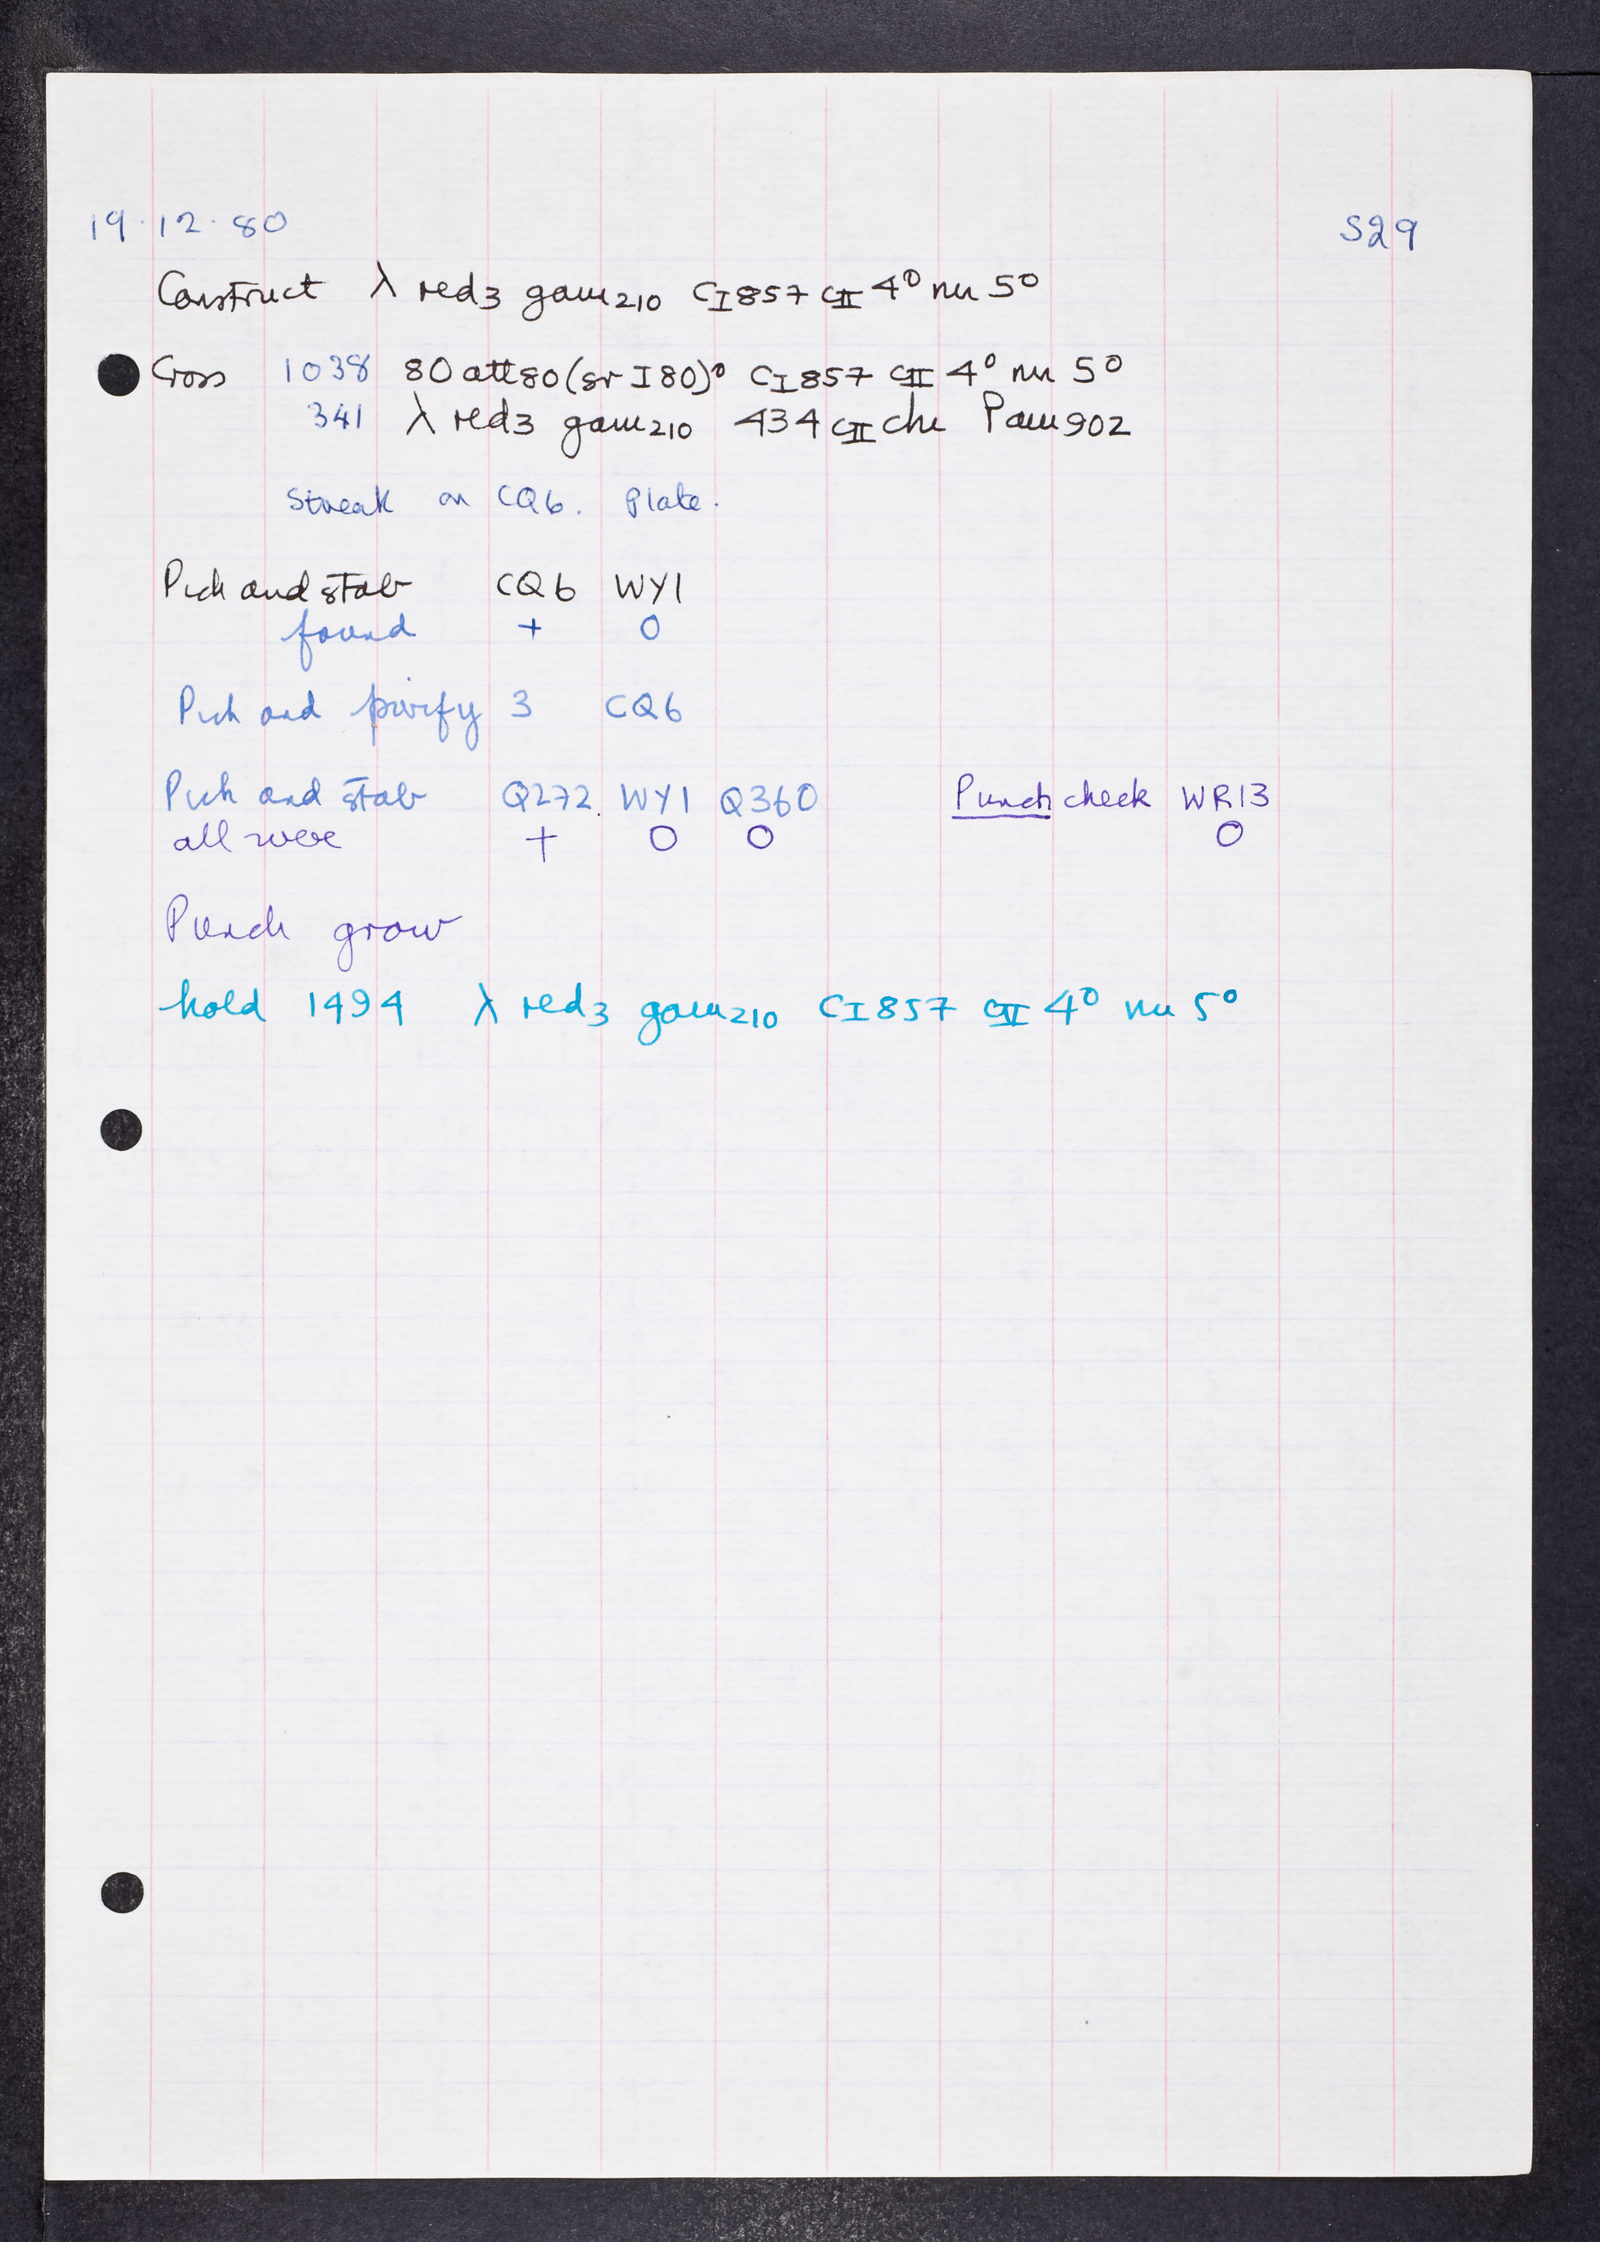 19.12.80 S29
Construct λ red3 gam210 CI857 CII 4⁰ nin 5⁰
Cross 1038 80att80(sr I 80)⁰ CI857 CII 4⁰ nin 5⁰
341 λ red3 gam210 434 CII chi Pam902
Streak on CQ6. Plate.
Pick and stab CQ6 WY1
found + 0
Pick and purify 3 CQ6
Pick and stab Q272. WY1 Q360 Punch check WR13
all were + 0 0 0
Punch grow
hold 1494 λ red3 gam210 CI857 CII 4⁰ nin 5⁰